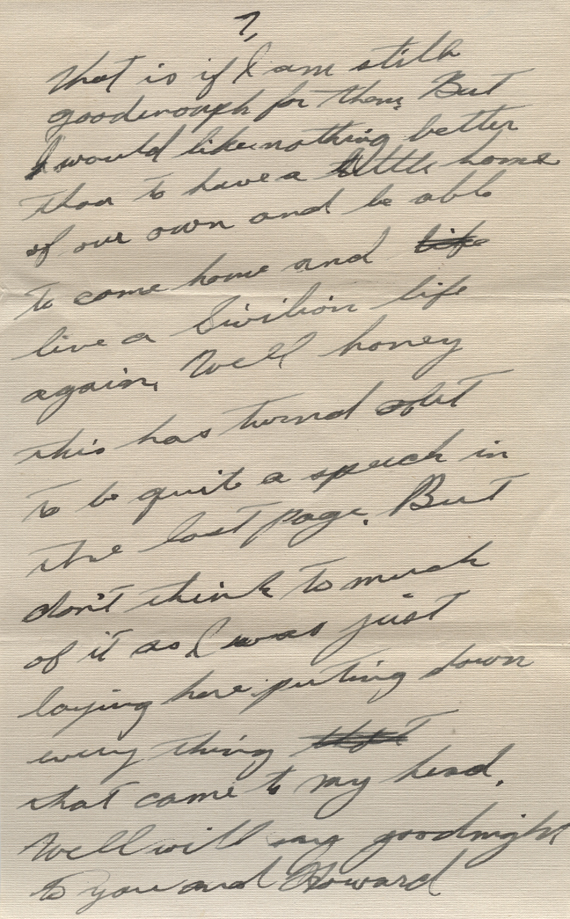 7,
that is if I am still
goodenough for them. But
I would like nothing better
than to have a little home
of our own and be able
to come home and life
live a Sivilion life
again, Well honey
this has turnd out
to be quite a speech in
the last page. But
don't think to much
of it as I was just
laying here putting down
every thing that
that came to my head.
Well will say goodnight
to you and Howard